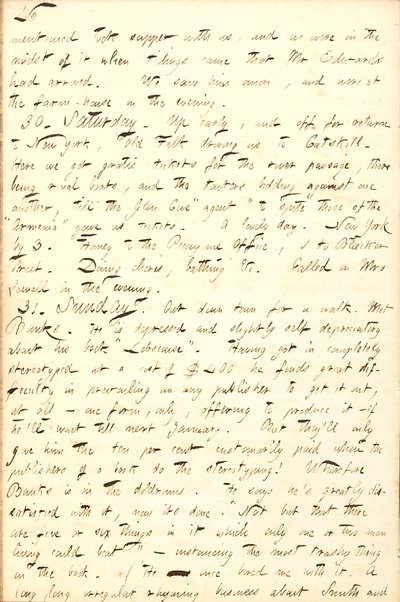 46
mentioned took supper with us, and we were in the
midst of it when tidings came that Mr Edwards
had arrived. We saw him anon, and were at
the farm-house in the evening.
30. Saturday. Up early, and off for return
to New York, old Falk driving us to Catskill.
Here we got gratis tickets for the river passage, there
being rival boats, and the touters bidding against one
another, till the "Glen Cove" agent "to spite those of the
"Armenia" gave us tickets. A lovely day. New York
by 3. Haney to the Picayune Office, I to Bleecker
Street. Doing chores, bathing &c. Called on Mrs
Jewell in the evening.
31. Sunday. Out down town for a walk. Met
Banks. He is depressed and slightly self depreciating
about his book "          ". Having got it completely
stereotyped at a cost of $400 he finds great dif-
ficulty in prevailing on any publisher to get it out,
at all — one firm, only, offering to produce it if
he'll wait till next January. But they'll only
give him the ten per cent customarily paid when the
publishers of a book do the stereotyping! Wherefore
Banks is in the doldrums. He says he's greatly dis-
satisfied with it, now its done. "Not but that there
are five or six things in it which only one or two men
living could beat" — instancing the most trashy thing
in the book. (He once bored me with it. A
long, long irregular rhyming business about Smith and